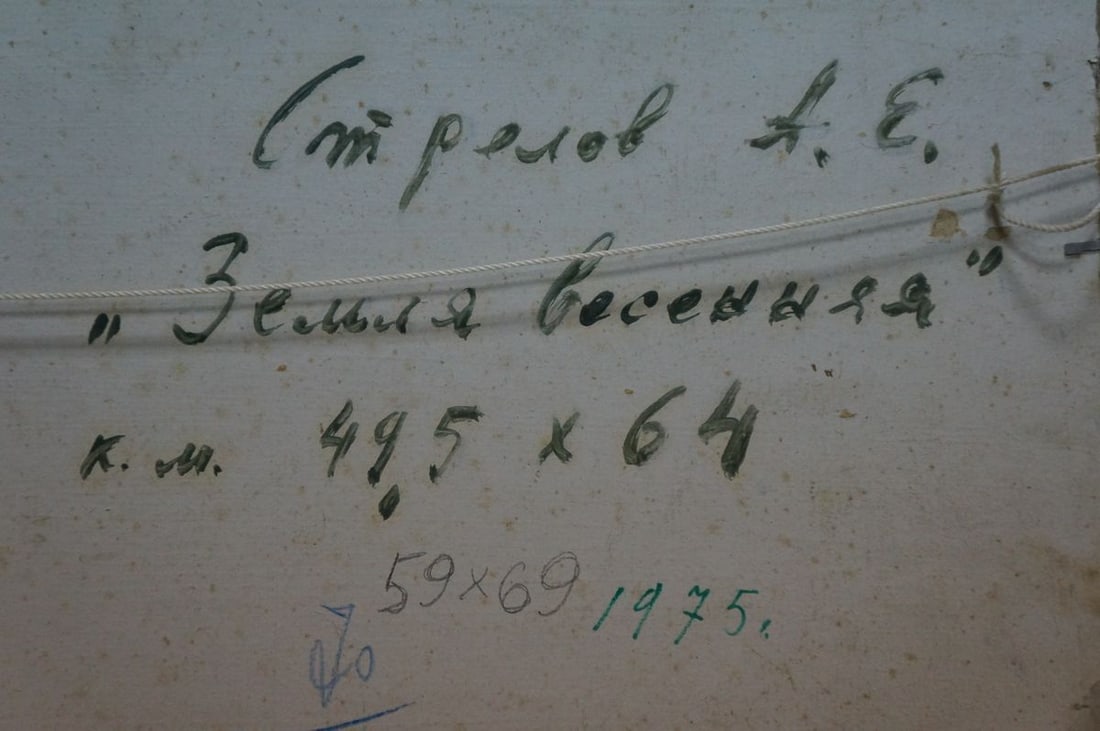 Стрелов А. Е.
„Земля весенняя"
к. м. 49,5 х 64
59х69 1975.